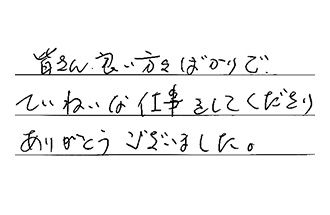 皆さん良い方をばかりで
ていねいな仕事をしてくださり
ありがとうございました。